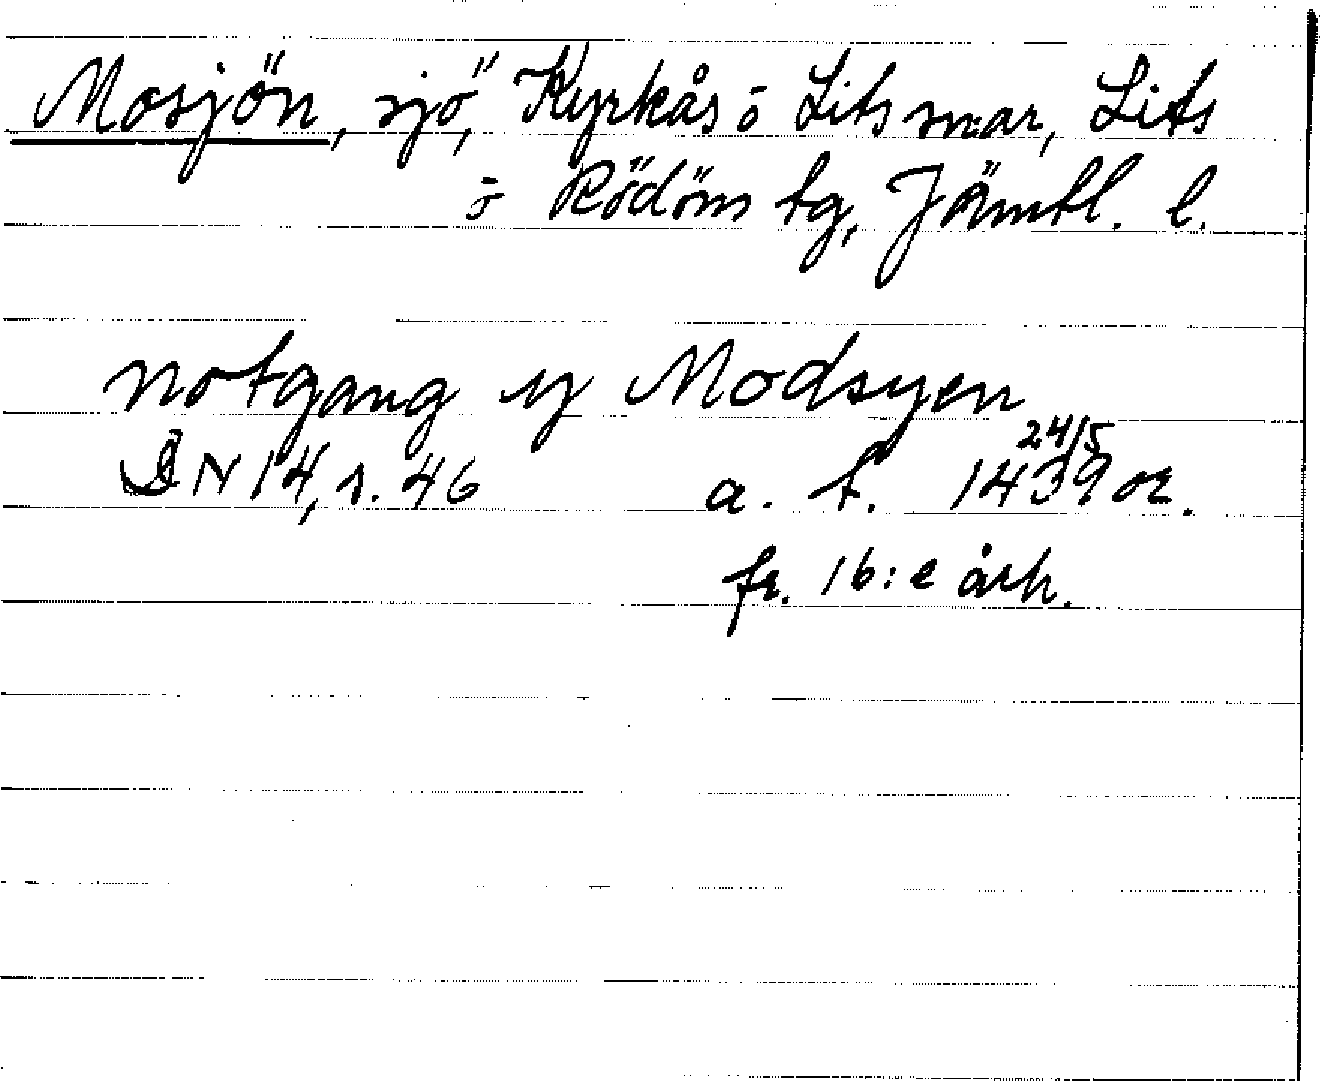 Mosjön, sjö, Kyrkås o Lits snar, Lits
o Rödöns tg, Jämtl. l.
notgang y Modsyen
DN 14, s. 46 a. t. 24/5 1439 or.
fr. 16:e årh.